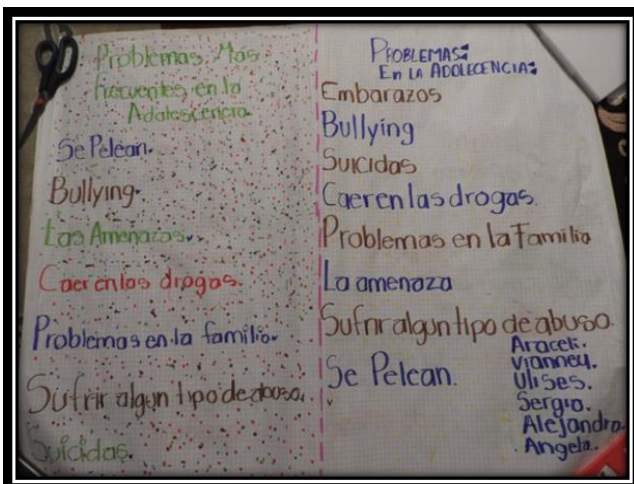 Problemas Mas
frecuentes en la
Adolescencia.
Se Pelean.
Bullying.
Las Amenazas.
Caer en las drogas.
Problemas en la familia.
Sufrir algun tipo de abuso.
Suicidas.
PROBLEMAS:
En LA ADOLECENCIA:
Embarazos
Bullying
Suicidas
Caer en las drogas.
Problemas en la Familia
La amenaza
Sufrir algun tipo de abuso.
Se Pelean.
Araceli.
Vianney.
Ulises.
Sergio.
Alejandro.
Angela.